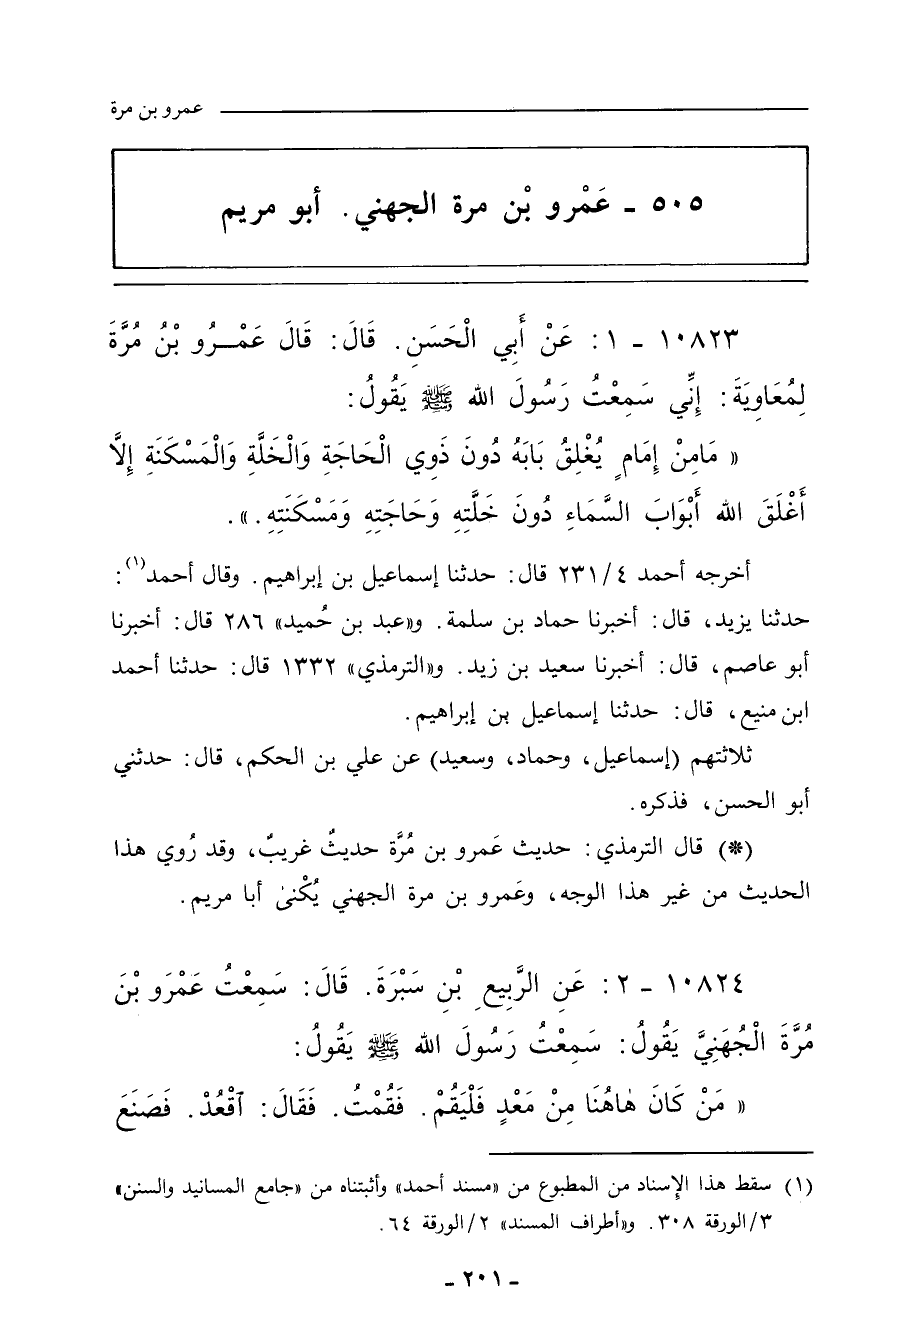 عمرو بن مرة
٥٠٥ ـ عَمْرو بْن مرة الجهني. أبو مريم
١٠٨٢٣ ـ ١: عَنْ أَبِي الْحَسَنِ. قَالَ: قَالَ عَمْـرُو بْنُ مُرَّةَ
لِمُعَاوِيَةَ: إِنِّي سَمِعْتُ رَسُولَ الله ﷺ يَقُولُ:
« مَامِنْ إِمَامٍ يُغْلِقُ بَابَهُ دُونَ ذَوِي الْحَاجَةِ وَالْخَلَّةِ وَالْمَسْكَنَةِ إِلَّا
أَغْلَقَ الله أَبْوَابَ السَّمَاءِ دُونَ خَلَّتِهِ وَحَاجَتِهِ وَمَسْكَنَتِهِ.».
أخرجه أحمد ٢٣١/٤ قال: حدثنا إسماعيل بن إبراهيم. وقال أحمد(١):
حدثنا يزيد، قال: أخبرنا حماد بن سلمة. و«عبد بن حُميد» ٢٨٦ قال: أخبرنا
أبو عاصم، قال: أخبرنا سعيد بن زيد. و«الترمذي» ١٣٣٢ قال: حدثنا أحمد
ابن منيع، قال: حدثنا إسماعيل بن إبراهيم.
ثلاثتهم (إسماعيل، وحماد، وسعيد) عن علي بن الحكم، قال: حدثني
أبو الحسن، فذكره.
(*) قال الترمذي: حديث عَمرو بن مُرَّة حديثٌ غريبٌ، وقد رُوي هذا
الحديث من غير هذا الوجه، وعَمرو بن مرة الجهني يُكْنىٰ أبا مريم.
١٠٨٢٤ ـ ٢: عَنِ الرَّبِيعِ بْنِ سَبْرَةَ. قَالَ: سَمِعْتُ عَمْرَو بْنَ
مُرَّةَ الْجُهَنِيَّ يَقُولُ: سَمِعْتُ رَسُولَ الله ﷺ يَقُولُ:
« مَنْ كَانَ هٰاهُنَا مِنْ مَعْدٍ فَلْيَقُمْ. فَقُمْتُ. فَقَالَ: ٱقْعُدْ. فَصَنَعَ
(١) سقط هذا الإسناد من المطبوع من «مسند أحمد» وأثبتناه من «جامع المسانيد والسنن»
٣/الورقة ٣٠٨. و«أطراف المسند» ٢/الورقة ٦٤.
ـ ٢٠١ ـ